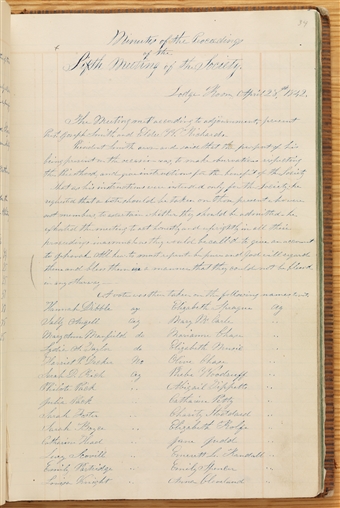 34
Minutes of the Proceedings
of the
Sixth Meeting of the Society.
Lodge Room April 28th 1842.
The Meeting met according to adjournment; present
Prest. Joseph Smith and Elder Wm Richards.
President Smith arose and said that the purport of his
being present on the occasion was, to make observations respecting
the Priesthood, and give instructions for the benefit of the Society
That as his instructions were intended only for the Society; he
requested that a vote should be taken on those present who were
not members, to ascertain whether they should be admitted— he
exhorted the meeting to act honestly and uprightly in all their
proceedings inasmuch as they would be call'd to give an account
to Jehovah. All hearts must repent— be pure and God will regard
them and bless them in a manner that they could not be bless'd
in any other way
A vote was then taken on the following names, to wit,
Hannah Dibble ay Elizabeth ay
Sally Angell ay Mary M.
Marianne Chase
Lydia do Elizabeth
Harriet P. Decker No Olive Chase
Sarah D. Rich ay Phebe Woodruff
Abigail Tippetts
Julia
Sarah Foster Charity
Sarah Elizabeth
Catharine Jane Judd
Lucy
Emily Partridge
Louisa Knight